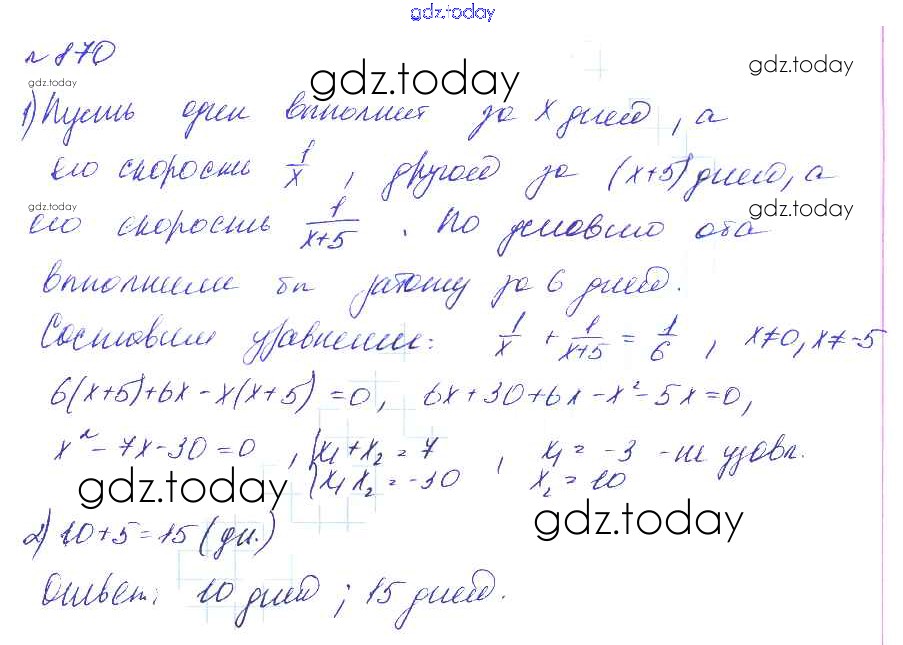 gdz.today
n 870
gdz.today
gdz.today
gdz.today
1) Пусть один выполнит за x дней, а
его скорость 1/x, другой за (x+5) дней, а
gdz.today
gdz.today
его скорость 1/(x+5). По условию оба
выполнили бы работу за 6 дней.
Составим уравнение: 1/x + 1/(x+5) = 1/6, x≠0, x≠-5
6(x+5)+6x-x(x+5)=0, 6x+30+6x-x²-5x=0,
x²-7x-30=0, x₁+x₂=7, x₁=-3 - не удовл.
x₁x₂=-30 x₂=10
gdz.today
gdz.today
2) 10+5=15 (дн.)
Ответ: 10 дней; 15 дней.